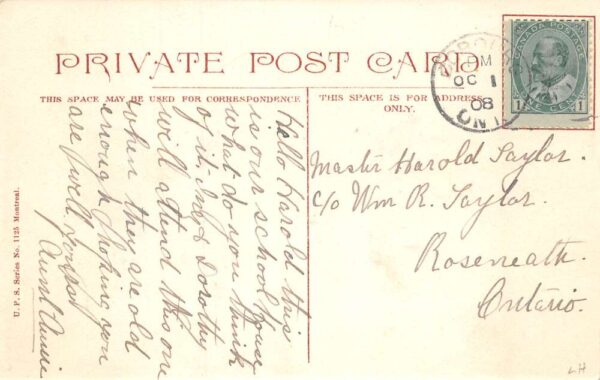 PRIVATE POST CARD
THIS SPACE MAY BE USED FOR CORRESPONDENCE
THIS SPACE IS FOR ADDRESS
ONLY.
CANADA POSTAGE
1 ONE CENT 1
PM
OC 1
08
ONT
Master Harold Taylor.
c/o Wm R. Taylor.
Roseneath.
Ontario.
Hello Harold this
is our school house
what do you think
of it. & Dorothy
will attend this one
when they are old
enough Hoping you
are well.
Aunt Annie
U. P. S. Series No. 1125 Montreal.
LH